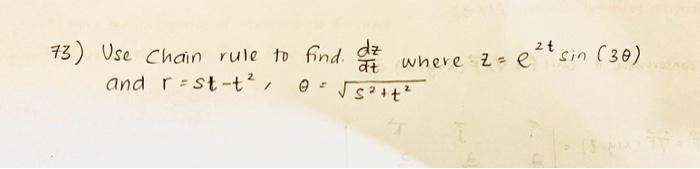 73) Use Chain rule to find. dz/dt where z = e^2t sin (3θ)
and r = st - t², θ = √s²+t²